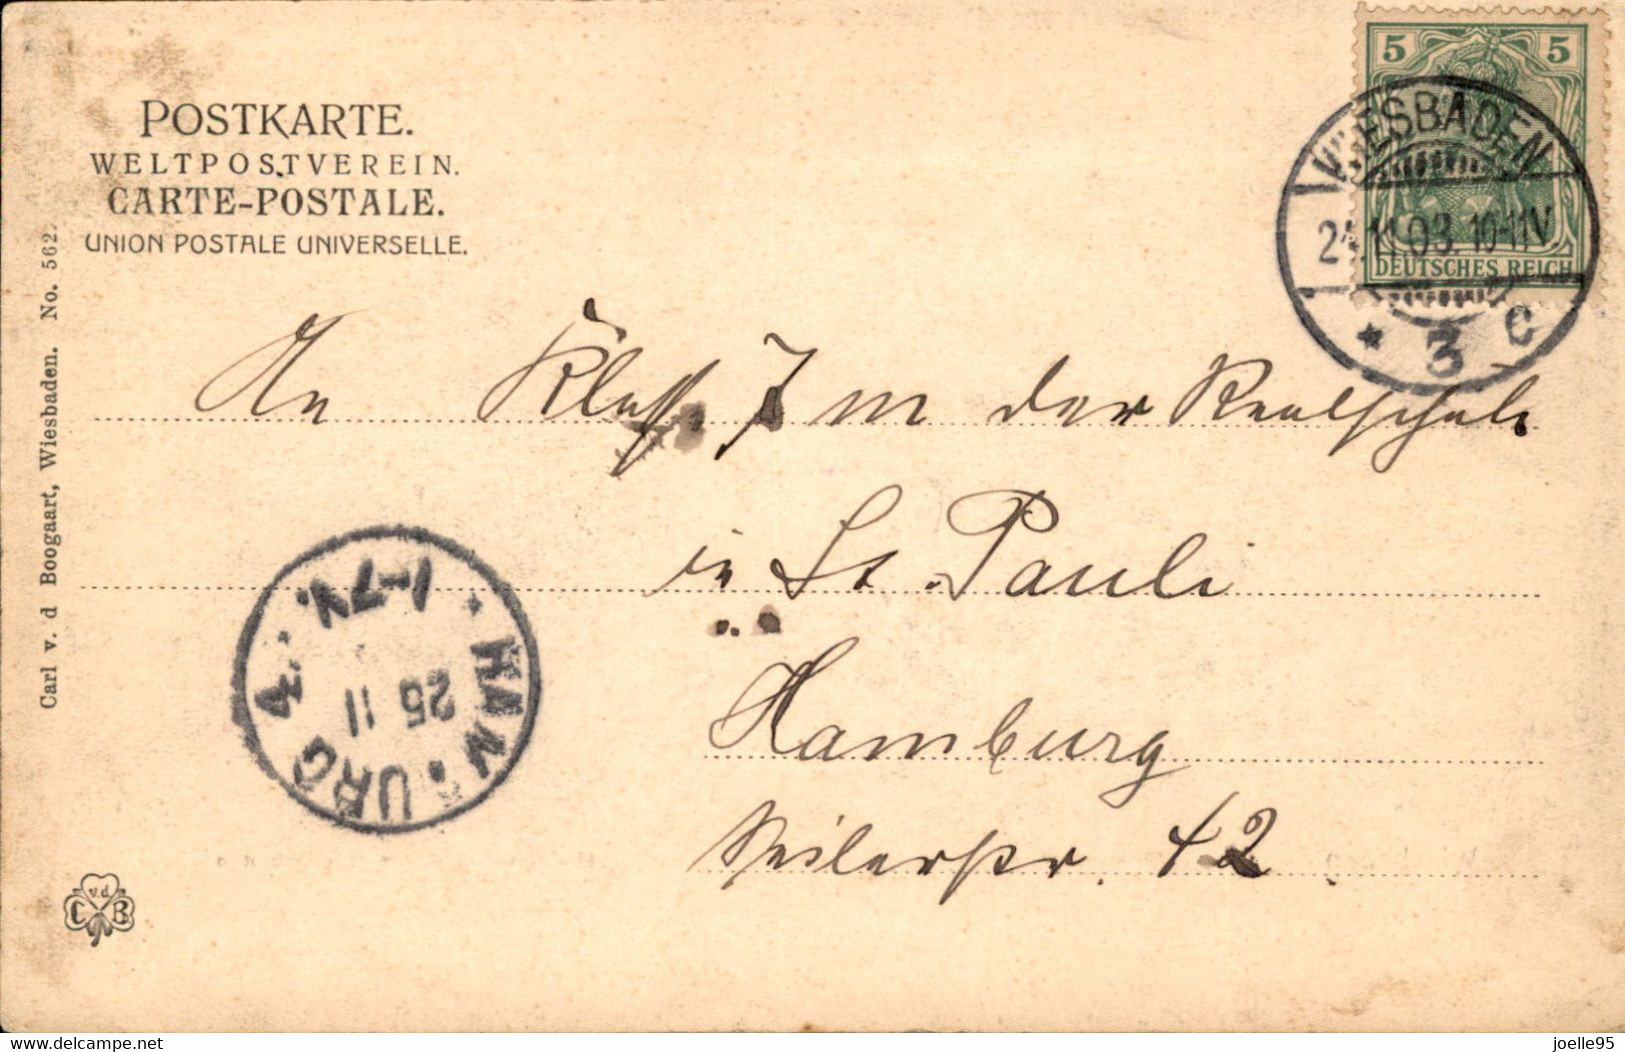 POSTKARTE.
WELTPOSTVEREIN.
CARTE-POSTALE.
UNION POSTALE UNIVERSELLE.
Carl v. d Boogaart, Wiesbaden. No. 562.
5 5
DEUTSCHES REICH
WIESBADEN
24.11.03. 10-11V
* 3 c
An Klasse 7 m der Realschule
in St. Pauli
Hamburg
Seilerstr. 42.
HAMBURG 4.
25 11
v.d
C B
www.delcampe.net
joelle95